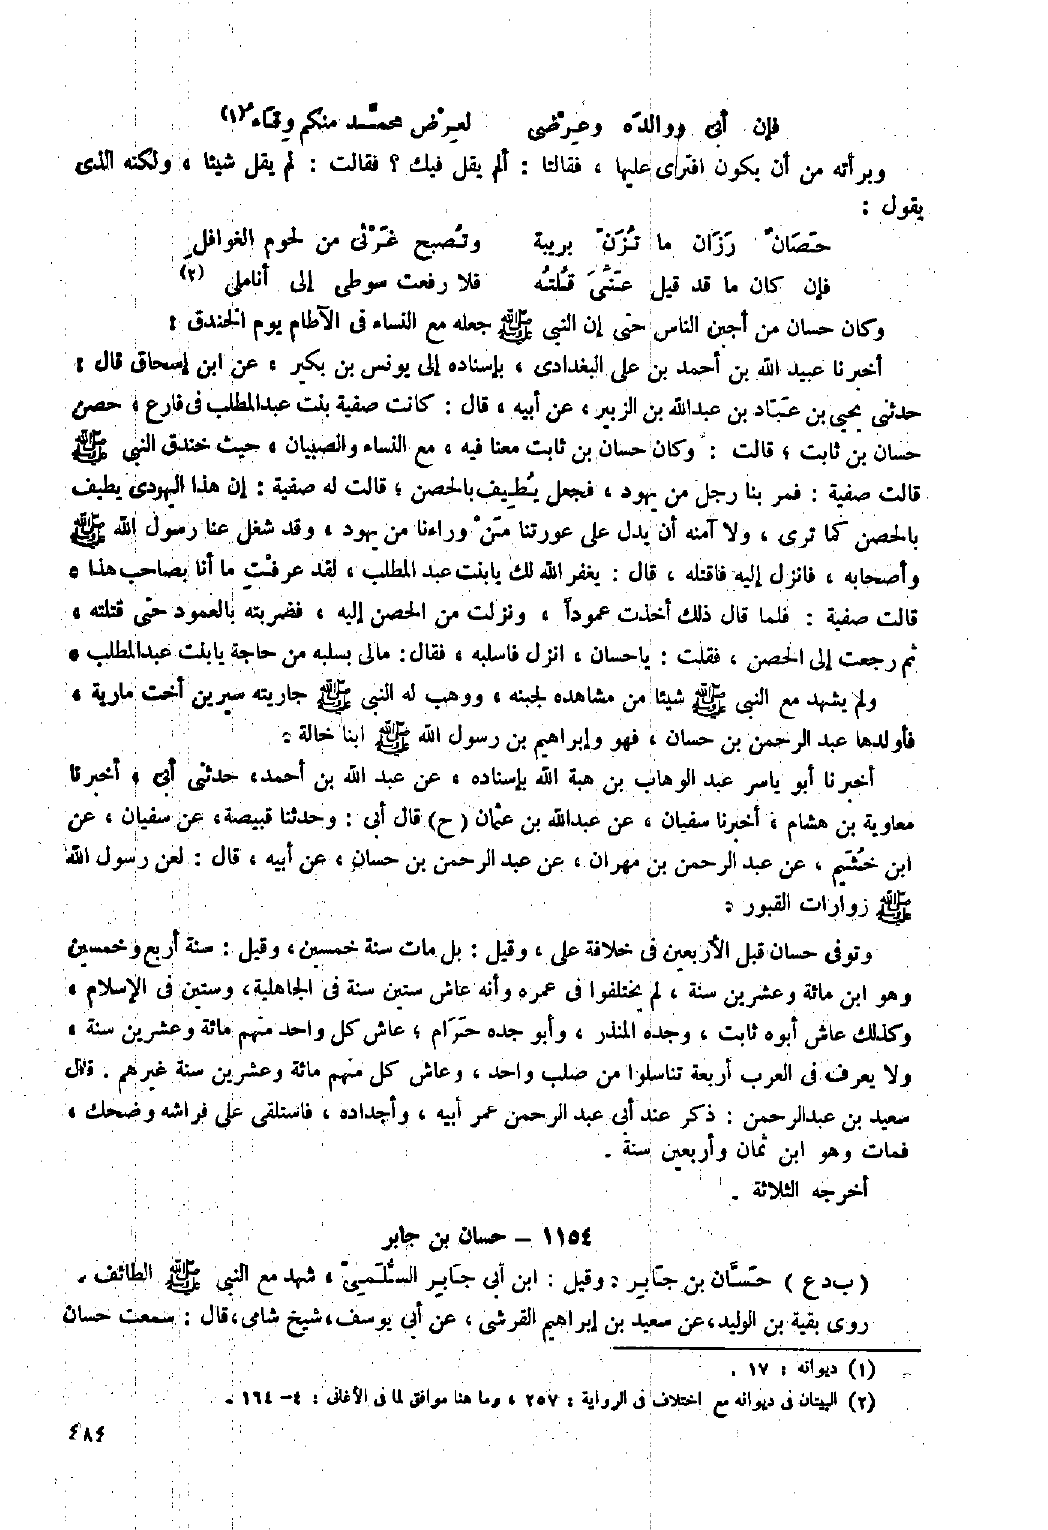 فإن أبى ووالدَه وعِرْضى لعِرْض محمَّد منكم وِقاء (١)
وبرأته من أن يكون افترى عليها ، فقالتا : ألم يقل فيك ؟ فقالت : لم يقل شيئا ، ولكنه الذى
يقول :
حَصَانٌ رَزَان ما تُزَنّ بريبة وتُصبح غَرْثى من لحوم الغوافل
فإن كان ما قد قيل عَنِّىَ قُلتُه فلا رفعت سوطى إلى أناملى (٢)
وكان حسان من أجبن الناس حتى إن النبى ﷺ جعله مع النساء فى الآطام يوم الخندق :
أخبرنا عبيد الله بن أحمد بن على البغدادى ، بإسناده إلى يونس بن بكير ، عن ابن إسحاق قال :
حدثنى يحيى بن عبَّاد بن عبدالله بن الزبير ، عن أبيه ، قال : كانت صفية بنت عبدالمطلب فى فارع ، حصن
حسان بن ثابت ، قالت : وكان حسان بن ثابت معنا فيه ، مع النساء والصبيان ، حيث خندق النبى ﷺ
قالت صفية : فمر بنا رجل من يهود ، فجعل يُطِيف بالحصن ؛ قالت له صفية : إن هذا اليهودى يطيف
بالحصن كما ترى ، ولا آمنه أن يدل على عورتنا مَنْ وراءنا من يهود ، وقد شغل عنا رسول الله ﷺ
وأصحابه ، فانزل إليه فاقتله ، قال : يغفر الله لك يابنت عبد المطلب ، لقد عرفْتِ ما أنا بصاحب هذا .
قالت صفية : فلما قال ذلك أخذت عموداً ، ونزلت من الحصن إليه ، فضربته بالعمود حتى قتلته ،
ثم رجعت إلى الحصن ، فقلت : ياحسان ، انزل فاسلبه ، فقال : مالى بسلبه من حاجة يابنت عبدالمطلب .
ولم يشهد مع النبى ﷺ شيئا من مشاهده لجبنه ، ووهب له النبى ﷺ جاريته سيرين أخت مارية ،
فأولدها عبد الرحمن بن حسان ، فهو وإبراهيم بن رسول الله ﷺ ابنا خالة .
أخبرنا أبو ياسر عبد الوهاب بن هبة الله بإسناده ، عن عبد الله بن أحمد ، حدثنى أبى ، أخبرنا
معاوية بن هشام ، أخبرنا سفيان ، عن عبدالله بن عثمان (ح) قال أبى : وحدثنا قبيصة ، عن سفيان ، عن
ابن خُثَيم ، عن عبد الرحمن بن مهران ، عن عبد الرحمن بن حسان ، عن أبيه ، قال : لعن رسول الله
ﷺ زوارات القبور .
وتوفى حسان قبل الأربعين فى خلافة على ، وقيل : بل مات سنة خمسين ، وقيل : سنة أربع وخمسين
وهو ابن مائة وعشرين سنة ، لم يختلفوا فى عمره وأنه عاش ستين سنة فى الجاهلية ، وستين فى الإسلام ،
وكذلك عاش أبوه ثابت ، وجده المنذر ، وأبو جده حَرَام ؛ عاش كل واحد منهم مائة وعشرين سنة ،
ولا يعرف فى العرب أربعة تناسلوا من صلب واحد ، وعاش كل منهم مائة وعشرين سنة غيرهم . قال
سعيد بن عبدالرحمن : ذكر عند أبى عبد الرحمن عمر أبيه ، وأجداده ، فاستلقى على فراشه وضحك ،
فمات وهو ابن ثمان وأربعين سنة .
أخرجه الثلاثة .
١١٥٤ – حسان بن جابر
(ب د ع ) حَسَّان بن جَابِر . وقيل : ابن أبى جَابِر السُّلَمِىّ ، شهد مع النبى ﷺ الطائف .
روى بقية بن الوليد ، عن سعيد بن إبراهيم القرشى ، عن أبى يوسف ، شيخ شامى ، قال : سمعت حسان
(١) ديوانه : ١٧ .
(٢) البيتان فى ديوانه مع اختلاف فى الرواية : ٢٥٧ ، وما هنا موافق لما فى الأغانى : ٤– ١٦٤ .
٤٨٤